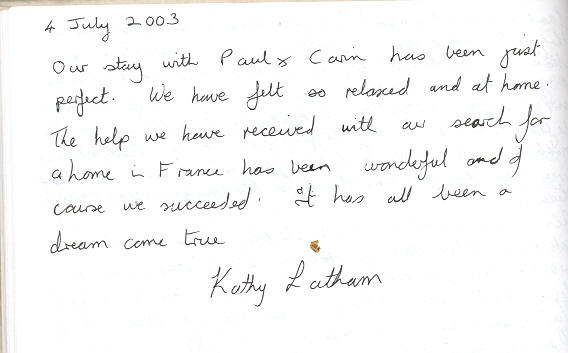 4 July 2003
Our stay with Paul & Carin has been just
perfect. We have felt so relaxed and at home.
The help we have received with our search for
a home in France has been wonderful and of
course we succeeded. It has all been a
dream come true
Kathy Latham